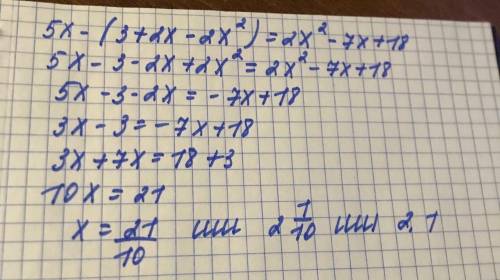 5x - (3 + 2x - 2x²) = 2x² - 7x + 18
5x - 3 - 2x + 2x² = 2x² - 7x + 18
5x - 3 - 2x = -7x + 18
3x - 3 = -7x + 18
3x + 7x = 18 + 3
10x = 21
x = 21/10 или 2 1/10 или 2,1